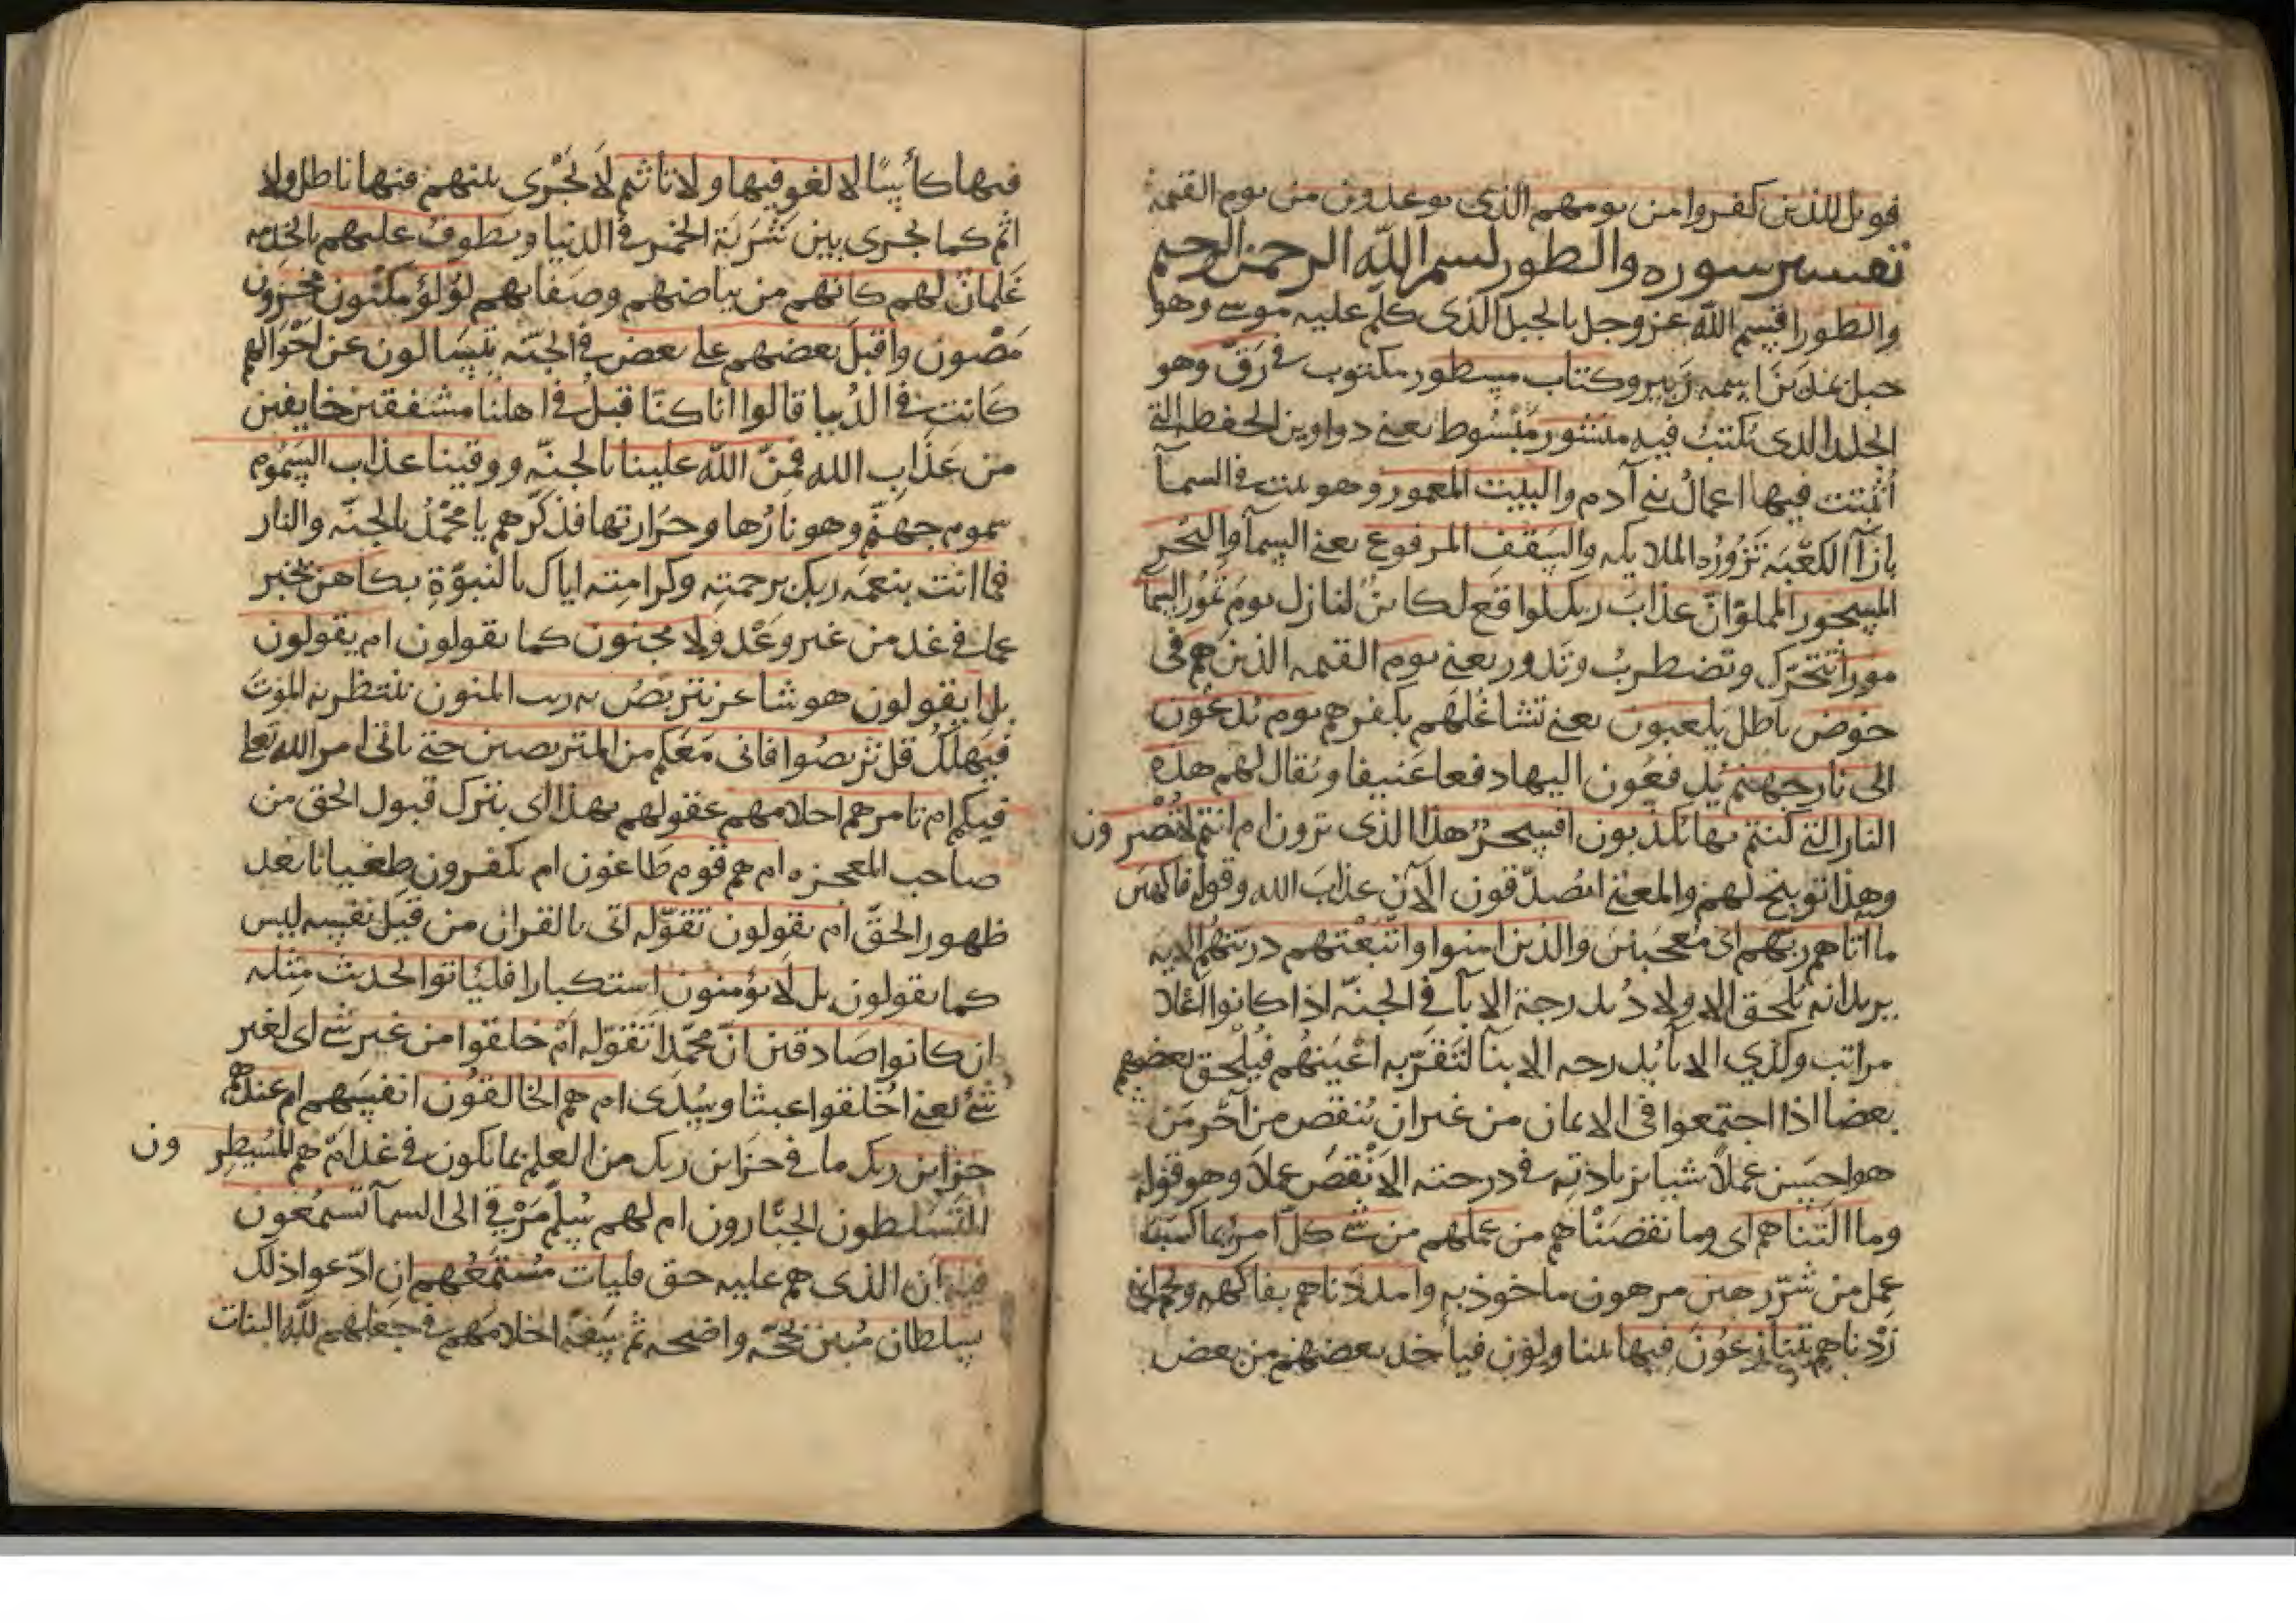 فويل للذين كفروا من يومهم الذي يوعدون من يوم القيمة
تفسير سوره والطور بسم الله الرحمن الرحيم
والطور اقسم الله عز وجل بالجبل الذى كلم عليه موسى وهو
جبل بمدين اسمه زبير وكتاب مسطور مكتوب في رق وهو
الجلد الذى يكتب فيه منشور مبسوط يعني دواوين الحفظه التي
اثبتت فيها اعمال بني آدم والبيت المعمور وهو بيت في السمآ
بازآ الكعبه تزوره الملايكه والسقف المرفوع يعني السمآ والبحر
المسجور المملوّ انّ عذاب ربك لواقع لكائن لنازل يوم تمور السما
مورا تتحرك وتضطرب وتدور يعني يوم القيمه الذين هم في
خوض باطل يلعبون يعني تشاغلهم بكفرهم يوم يدعون
الى نار جهنم يدفعون اليها دفعا عنيفا ويقال لهم هذه
النار التي كنتم بها تكذبون افسحر هذا الذى ترون ام انتم لا تبصرون
وهذا توبيخ لهم والمعنى اتصدقون الآن عذاب الله وقوله فاكهين
ما آتاهم ربهم اى معجبين والذين امنوا واتبعتهم ذريتهم الايه
يريد انه يلحق الاولاد بدرجة الابآ في الجنه اذا كانوا
مراتب وكذي الابآ بدرجه الابنآ لتقرّ به اعينهم فيلحق بعضهم
بعضا اذا اجتمعوا في الايمان من غير ان ينقص من آجر من
هو احسن عملا شيا بزيادته في درجته الانقص عملا وهو قوله
وما التناهم اى وما نقصناهم من عملهم من شي كل امرئ بما كسب
عمل من شرّ رهين مرهون ماخوذ به وامددناهم بفاكهه ولحم اى
زدناهم يتنازعون فيها يتناولون فيأخذ بعضهم من بعض
فيها كأسًا لا لغو فيها ولا تأثيم لا يجرى بينهم فيها باطل ولا
اثم كما يجرى بين شربة الخمر في الدنيا ويطوف عليهم بالخدمه
غلمان لهم كانهم من بياضهم وصفايهم لؤلؤ مكنون مخزون
مصون واقبل بعضهم على بعض في الجنّه يتسالون عن احوالهم
كانت في الدنيا قالوا انا كنّا قبل في اهلنا مشفقين خايفين
من عذاب الله فمنّ الله علينا بالجنّه ووقينا عذاب السموم
سموم جهنّم وهو نارها وحرارتها فذكّرهم يا محمّد بالجنّه والنار
فما انت بنعمه ربك برحمته وكرامته اياك بالنبوّة بكاهن تخبر
بما في غد من غير وعد ولا مجنون كما يقولون ام يقولون
بل ايقولون هو شاعر نتربّص به ريب المنون ننتظر به الموت
فيهلك قل تربصوا فاني معكم من المتربصين حتى ياتي امر الله تعلى
فيكم ام تامرهم احلامهم عقولهم بهذا اى بترك قبول الحق من
صاحب المعجزه ام هم قوم طاغون ام يكفرون طغيانا بعد
ظهور الحقّ ام يقولون تقوّله اتى بالقران من قبل نفسه ليس
كما يقولون بل لا يؤمنون استكبارا فليأتوا بحديث مثله
ان كانوا صادقين انّ محمّدا تقوّله ام خلقوا من غير شي اى لغير
شئ يعني اخلقوا عبثا وسدى ام هم الخالقون انفسهم ام عندهم
خزاين ربك ما في خزاين ربك من العلم بما يكون في غد ام هم المسيطرون
المتسلطون الجبّارون ام لهم سلّم مرقى الى السمآ يستمعون
فيه ان الذى هم عليه حق فليات مستمعهم ان ادّعوا ذلك
بسلطان مبين بحجّه واضحه ثم سفّه احلامهم في جعلهم لله البنات